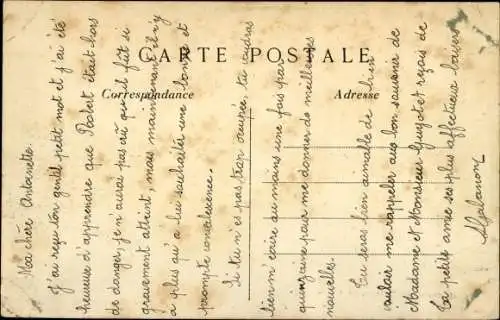 CARTE POSTALE
Correspondance
Adresse
Ma chère Antoinette.
J'ai reçu ton gentil petit mot et j'ai été
heureuse d'apprendre que Robert était hors
de danger, je n'aurai pas crû qu'il fût si
gravement atteint, mais maintenant il n'y
a plus qu'à lui souhaiter une bonne et
prompte convalescence.
Si tu n'es pas trop occupée, tu voudras
bien m'écrire au moins une fois par
quinzaine pour me donner de meilleures
nouvelles.
Tu seras bien aimable de bien
vouloir me rappeler aux bon souvenir de
Madame et Monsieur Guyot et reçois de
ta petite amie ses plus affectueux baisers